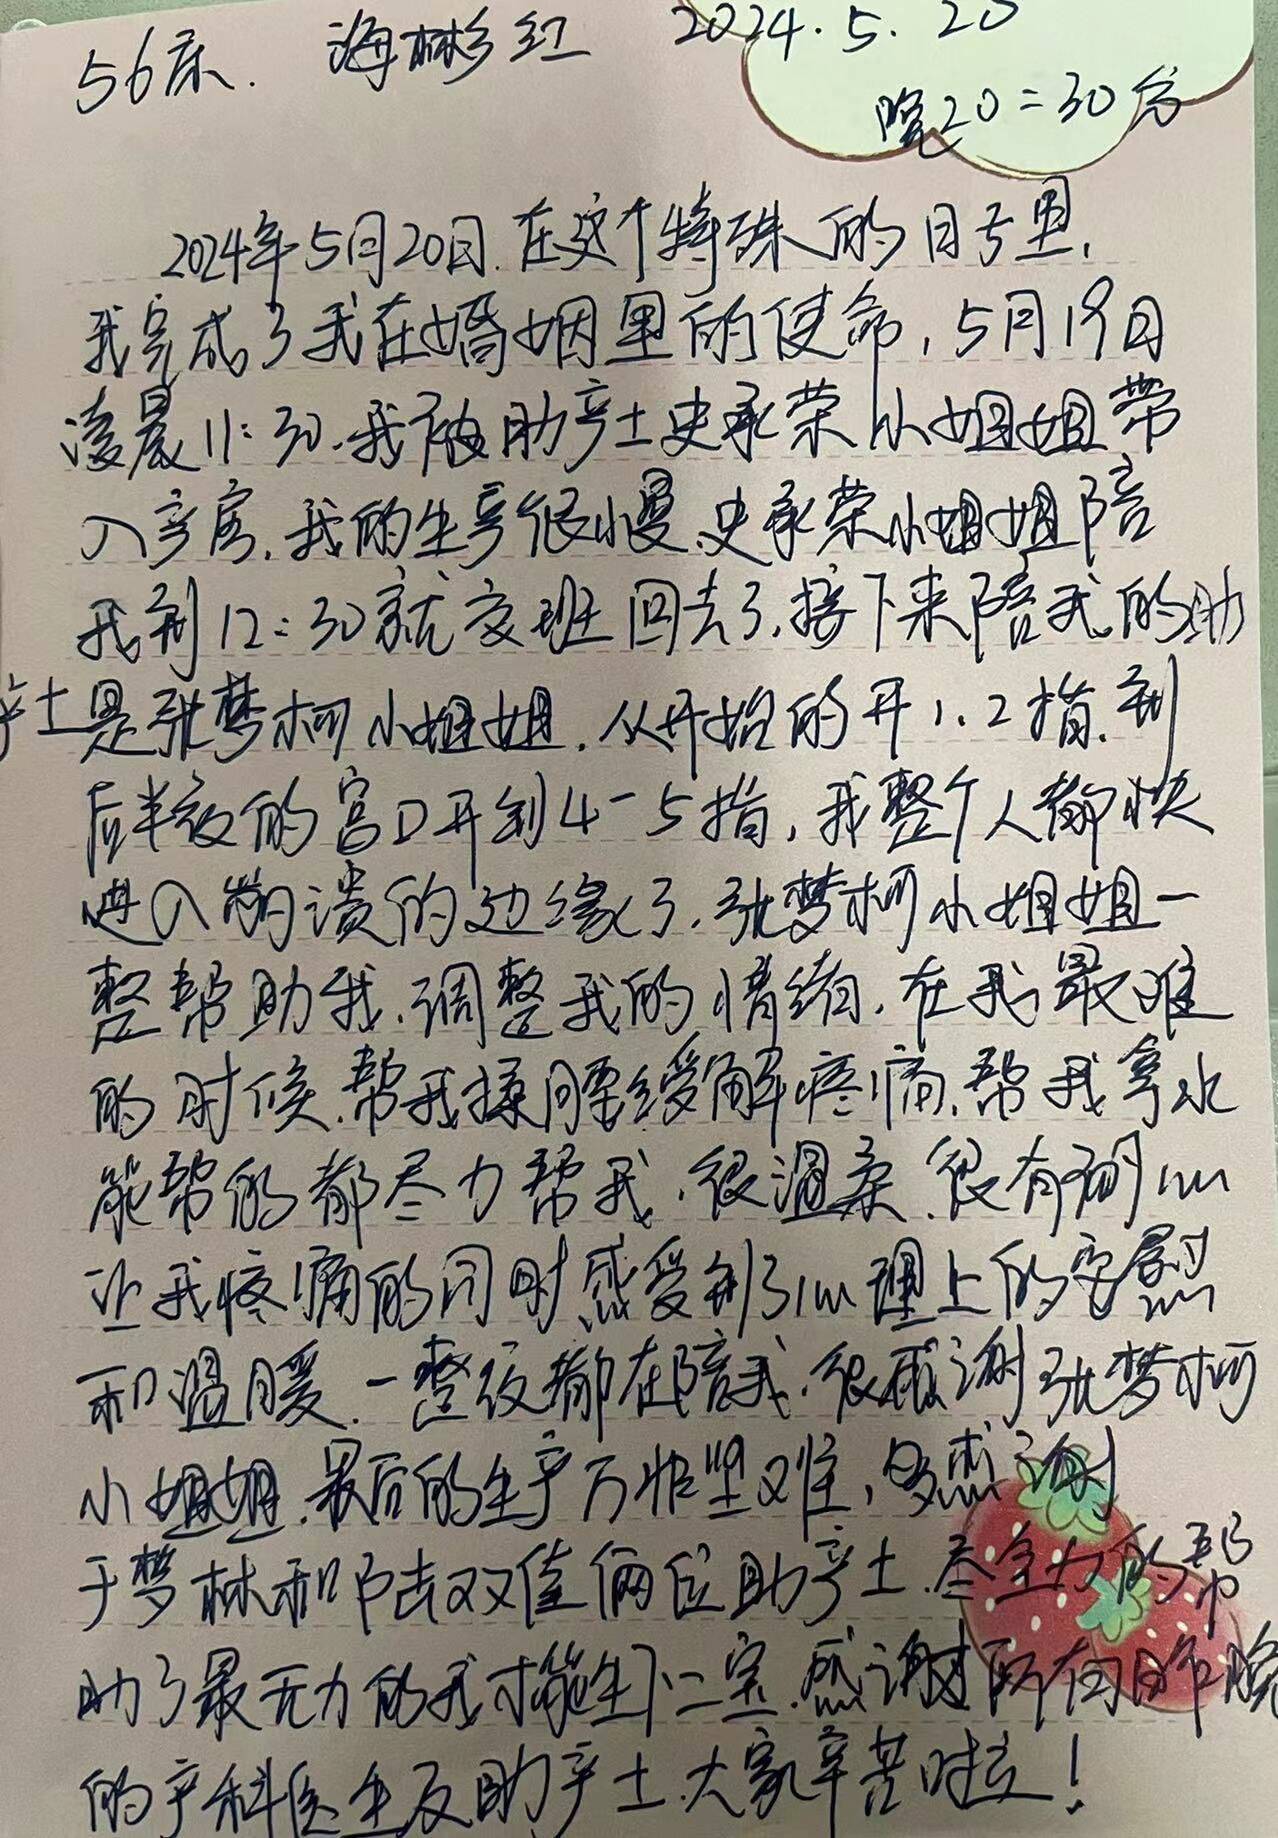 56床. 海彬红 2024.5.20
晚20:30分
2024年5月20日.在这个特殊的日子里,
我完成了我在婚姻里的使命,5月19日
凌晨11:30.我被助产士史承荣小姐姐带
入产房.我的生产很慢.史承荣小姐姐陪
我到12:30就交班回去了,接下来陪我的助
产士是张梦柯小姐姐.从开始的开1.2指.到
后半夜的宫口开到4-5指,我整个人都快
进入崩溃的边缘了.张梦柯小姐姐一
整帮助我.调整我的情绪.在我最难
的时候.帮我揉腰缓解疼痛.帮我拿水
能帮的都尽力帮我.很温柔.很有耐心
让我疼痛的同时感受到了心理上的安慰
和温暖.一整夜都在陪我.很感谢张梦柯
小姐姐.最后的生产万般坚难,多感谢
于梦林和陆双佳俩位助产士.尽全力的帮
助了最无力的我才能生下二宝.感谢所有昨晚
的产科医生及助产士.大家辛苦啦!